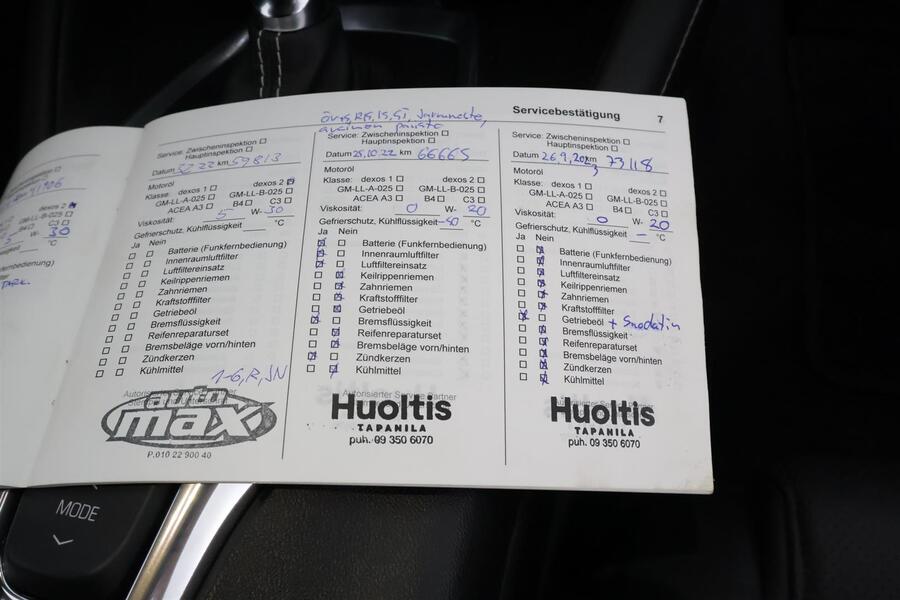 Servicebestätigung 7
Service: Zwischeninspektion
Hauptinspektion
Datum km 59813
Motoröl
Klasse: dexos 1 dexos 2
GM-LL-A-025 GM-LL-B-025
ACEA A3 B4 C3
Viskosität: 5 W-30
Gefrierschutz, Kühlflüssigkeit °C
Ja Nein
Batterie (Funkfernbedienung)
Innenraumluftfilter
Luftfiltereinsatz
Keilrippenriemen
Zahnriemen
Kraftstofffilter
Getriebeöl
Bremsflüssigkeit
Reifenreparaturset
Bremsbeläge vorn/hinten
Zündkerzen
Kühlmittel
auto
max
P.010 22 900 40
Service: Zwischeninspektion
Hauptinspektion
Datum 25.10.22 km 66665
Motoröl
Klasse: dexos 1 dexos 2
GM-LL-A-025 GM-LL-B-025
ACEA A3 B4 C3
Viskosität: 0 W- 20
Gefrierschutz, Kühlflüssigkeit -40 °C
Ja Nein
Batterie (Funkfernbedienung)
Innenraumluftfilter
Luftfiltereinsatz
Keilrippenriemen
Zahnriemen
Kraftstofffilter
Getriebeöl
Bremsflüssigkeit
Reifenreparaturset
Bremsbeläge vorn/hinten
Zündkerzen
Kühlmittel
Huoltis
TAPANILA
puh. 09 350 6070
Service: Zwischeninspektion
Hauptinspektion
Datum 26.9.2023 km 73118
Motoröl
Klasse: dexos 1 dexos 2
GM-LL-A-025 GM-LL-B-025
ACEA A3 B4 C3
Viskosität: 0 W- 20
Gefrierschutz, Kühlflüssigkeit - °C
Ja Nein
Batterie (Funkfernbedienung)
Innenraumluftfilter
Luftfiltereinsatz
Keilrippenriemen
Zahnriemen
Kraftstofffilter
Getriebeöl +
Bremsflüssigkeit
Reifenreparaturset
Bremsbeläge vorn/hinten
Zündkerzen
Kühlmittel
Huoltis
TAPANILA
puh. 09 350 6070
MODE